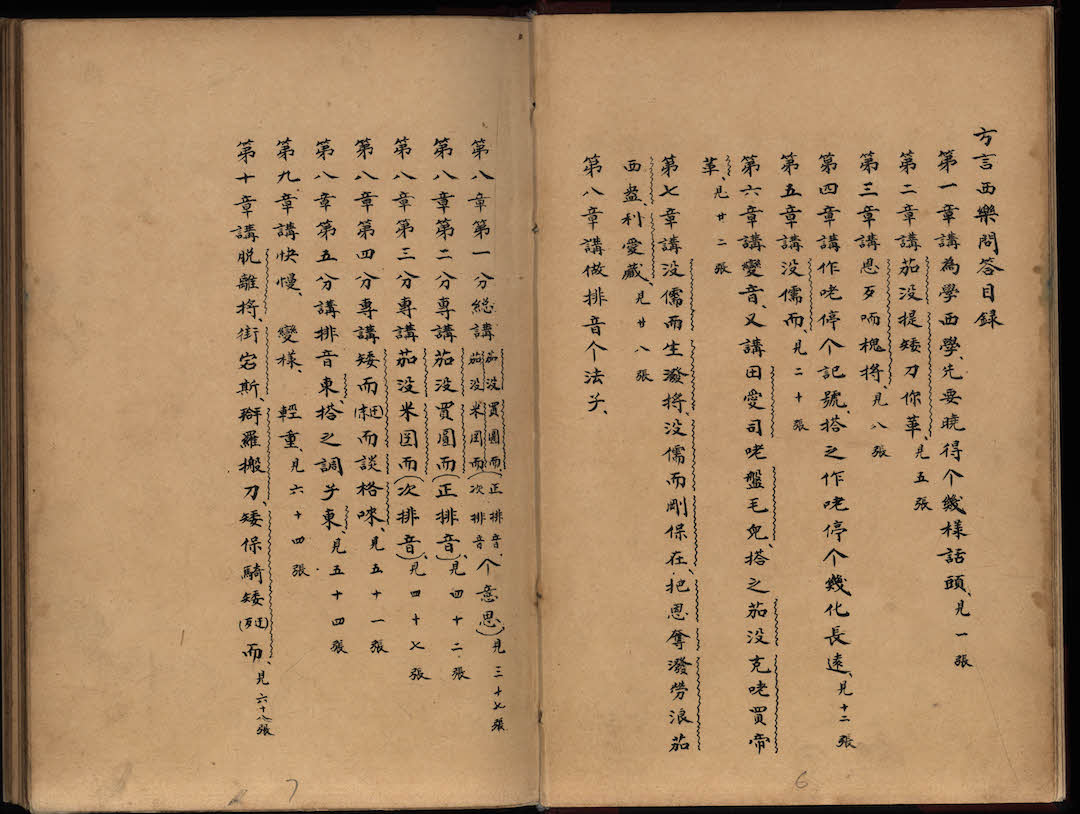 方言西樂問答目錄
第一章講為學西學、先要曉得个幾樣話頭、見一張
第二章講茄没提矮刀你華、見五張
第三章講恩歹唡槐將、見八張
第四章講作咾停个記號、搭之作咾停个幾化長遠、見十二張
第五章講没儒而、見二十張
第六章講變音、又講田愛司咾盤毛兒、搭之茄没克咾買帝
革、見廿二張
第七章講没儒而生潑將、没儒而剛保在、把恩奪潑勞浪茄
西盎利愛蔵、見廿八張
第八章講做排音个法子、
第八章第一分総講茄没買圓而(正排音、茄没米囝而(次排音个意思)、見三十七張
第八章第二分專講茄没買圓而(正排音)、見四十二張
第八章第三分專講茄没米囝而(次排音)、見四十七張
第八章第四分專講矮而 而談格味、見五十一張
第八章第五分講排音東搭之調子東、見五十四張
第九章講快慢、變樣、輕重、見六十四張
第十章講脱離將、街宕斯、 羅搬刀、矮保騎矮 而、見六十八張
6
7